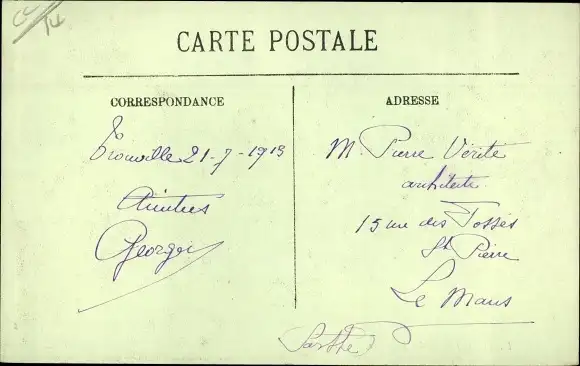 CARTE POSTALE
CORRESPONDANCE
Trouville 21-7-1913
Amitiés
Georges
ADRESSE
M. Pierre Vérité
architecte
15 rue des Fossés
St Pierre
Le Mans
Sarthe